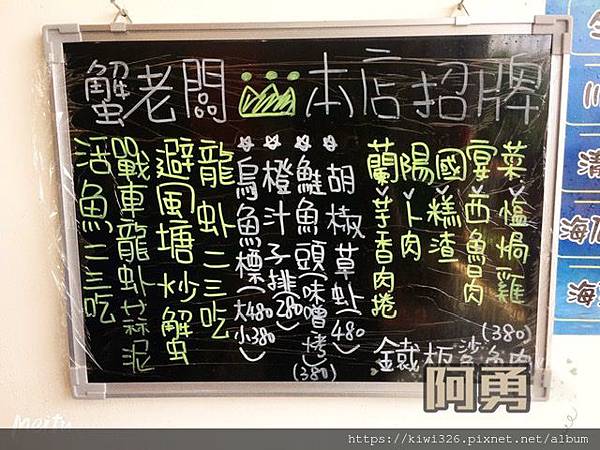 蟹老闆 本店招牌
蘭陽國宴菜
塩焗雞
西魯肉
糕渣
卜肉
芋香肉捲
(380)
鐵板鯊魚肉
胡椒草虾(480)
鮭魚頭(味噌烤)(380)
橙汁子排(280)
烏魚標(大480 小380)
龍虾二三吃
避風塘炒蟹
戰車龍虾 蒜泥
活魚二三吃
阿勇
Meitu
https://kiwi326.pixnet.net/album